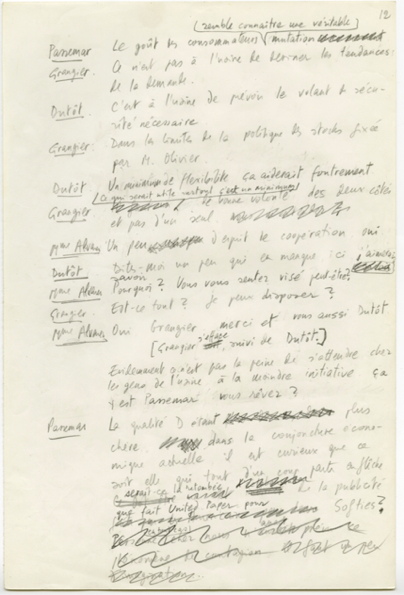 12
(semble connaître une véritable)
Passemar Le goût des consommateurs mutation
Grangier. Ce n'est pas à l'usine de deviner les tendances
de la demande.
Dutôt. C'est à l'usine de prévoir le volant de sécu-
rité nécessaire
Grangier. Dans les limites de la politique des stocks fixée
par M. Olivier.
Dutôt Un minimum de flexibilité ça aiderait foutrement
(Ce qui serait utile surtout c'est un minimum)
Grangier de bonne volonté des deux côtés
et pas d'un seul
Mme Alvan Un peu d'esprit de coopération oui
Dutôt Dites-moi un peu qui en manque ici j'aimerais
savoir
Mme Alvan Pourquoi? Vous vous sentez visé peut-être?
Grangier. Est-ce tout? Je peux disposer?
Mme Alvan Oui Grangier merci et vous aussi Dutôt
[Grangier s'efface suivi de Dutôt.]
Evidemment c'est pas la peine de s'attendre chez
les gens de l'usine à la moindre initiative ça
y est Passemar vous rêvez?
Passemar La qualité D étant plus
chère dans la conjoncture écono-
mique actuelle il est curieux que ce
soit elle qui tout d'un coup parte en flèche
serait-ce la retombée de la publicité
que fait United Paper pour Softies?